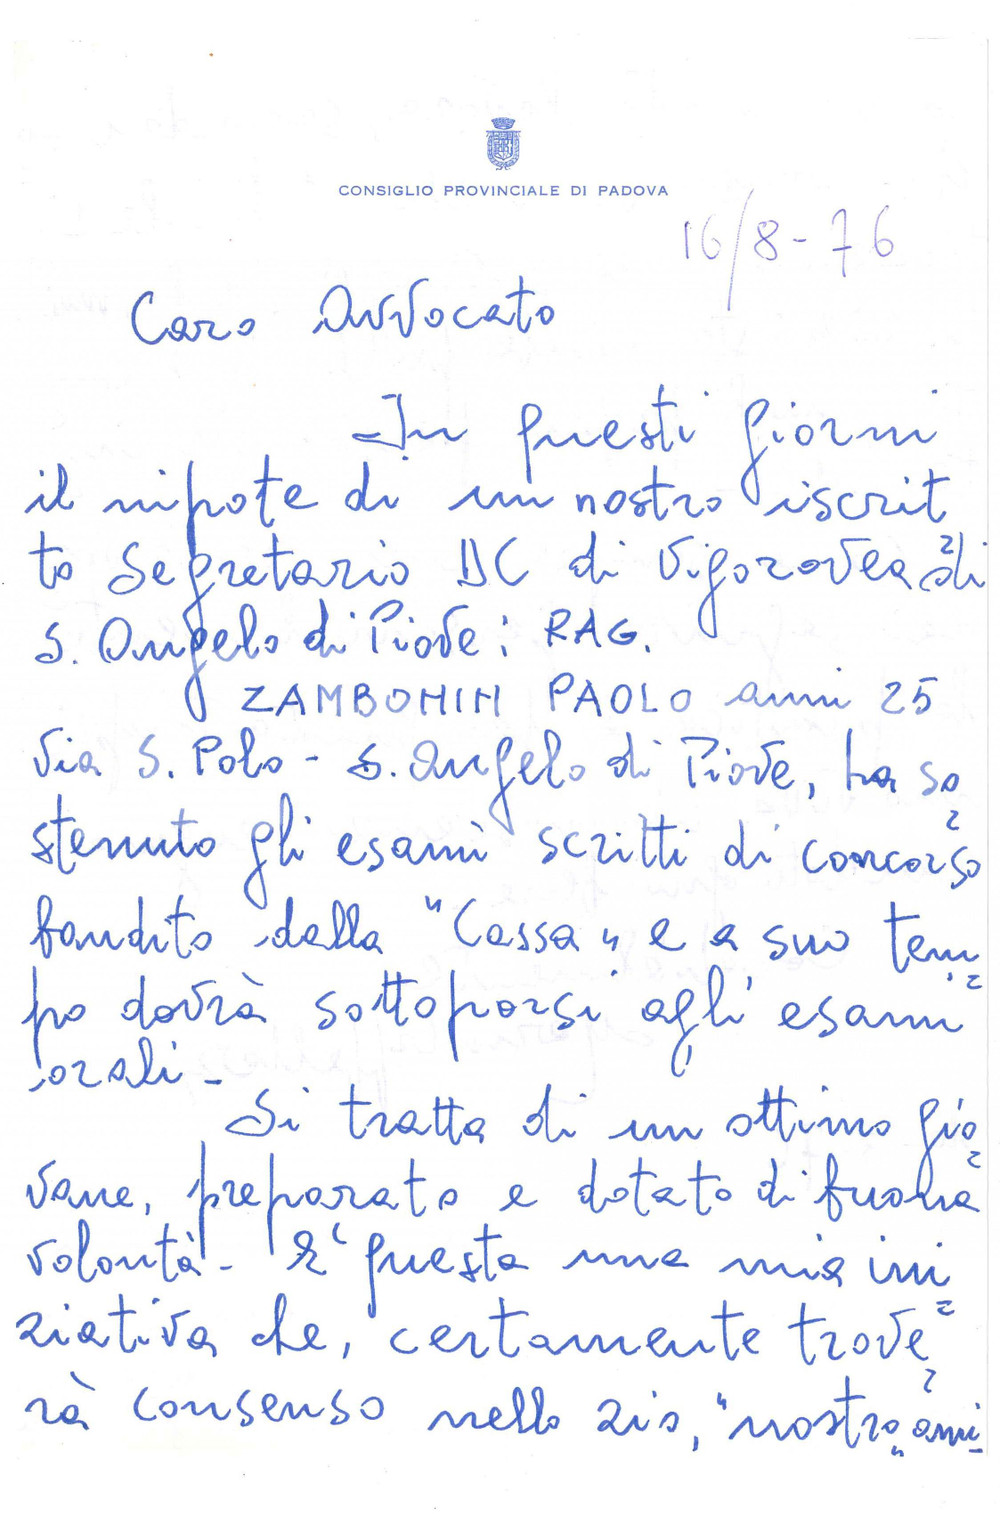 CONSIGLIO PROVINCIALE DI PADOVA
16/8-76
Caro Avvocato
In questi giorni
il nipote di un nostro iscrit
to Segretario DC di Vigorovea di
S. Angelo di Piove: RAG.
ZAMBONIN PAOLO anni 25
Via S. Polo - S. Angelo di Piove, ha so
stenuto gli esami scritti di concorso
bandito dalla "Cassa" e a suo tem
po dovrà sottoporsi agli esami
orali -
Si tratta di un ottimo gio
vane, preparato e dotato di buona
volontà - E' questa una mia ini
ziativa che, certamente trove
rà consenso nello zio, "nostro" ami